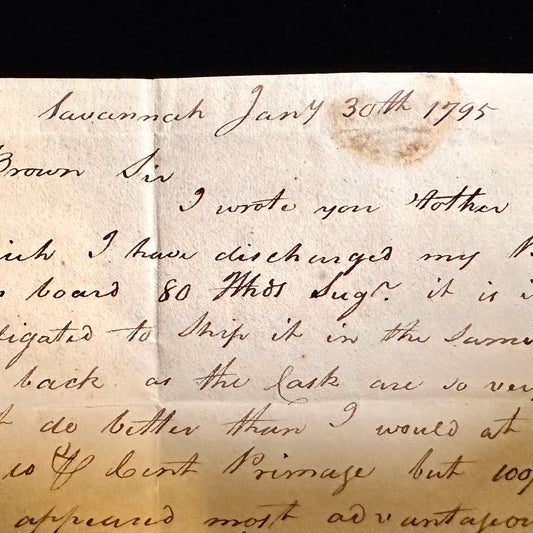 Savannah Jany 30th 1795
Brown Sir
I wrote you tother
I have discharged my
board 80 Hhds Sugr. it is
to Ship it in the same
back as the Cask are so very
do better than I would at
10 ⅌ Cent Primage but 100
appeared most advantageou